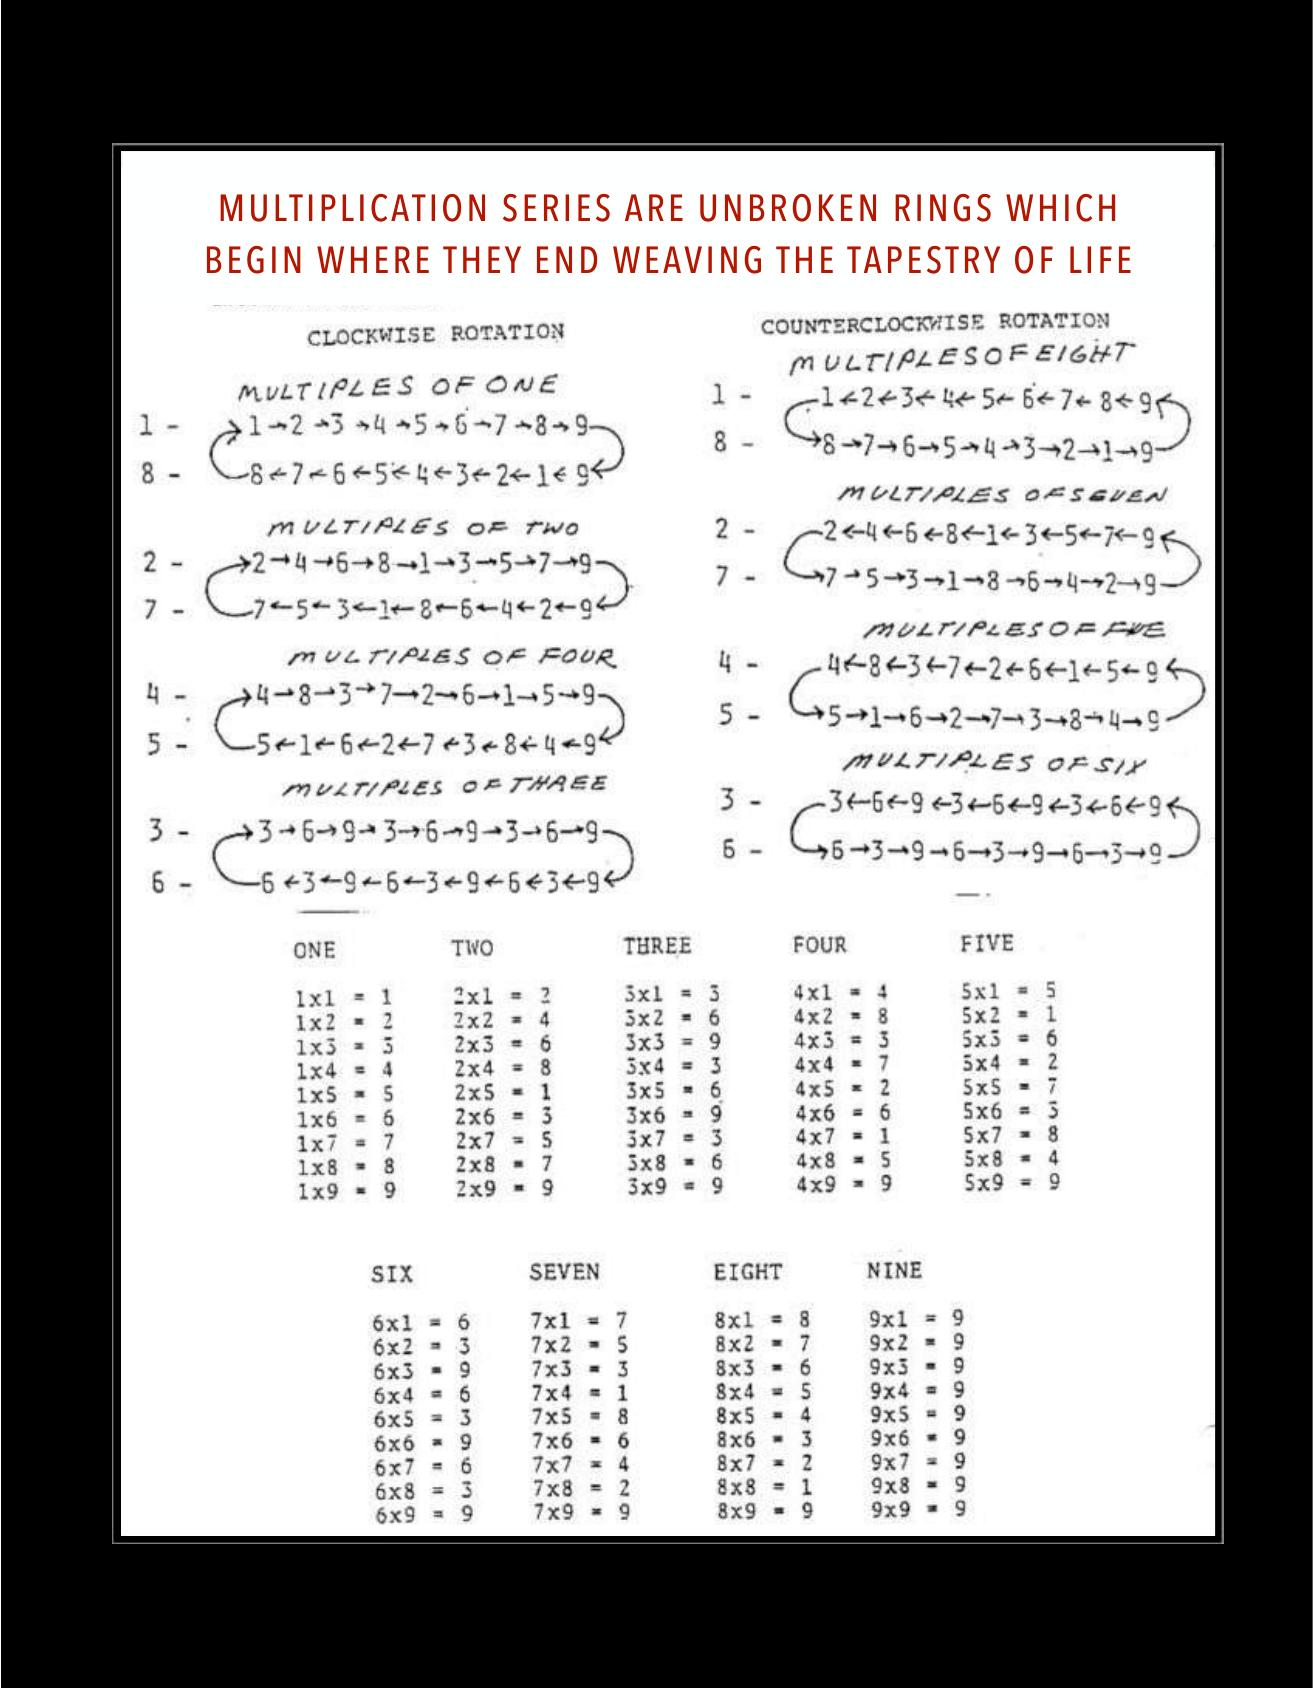 MULTIPLICATION SERIES ARE UNBROKEN RINGS WHICH
BEGIN WHERE THEY END WEAVING THE TAPESTRY OF LIFE
CLOCKWISE ROTATION
MULTIPLES OF ONE
1 - →1→2→3→4→5→6→7→8→9
8 - 8←7←6←5←4←3←2←1←9←
MULTIPLES OF TWO
2 - →2→4→6→8→1→3→5→7→9
7 - 7←5←3←1←8←6←4←2←9←
MULTIPLES OF FOUR
4 - →4→8→3→7→2→6→1→5→9
5 - 5←1←6←2←7←3←8←4←9←
MULTIPLES OF THREE
3 - →3→6→9→3→6→9→3→6→9
6 - 6←3←9←6←3←9←6←3←9←
COUNTERCLOCKWISE ROTATION
MULTIPLES OF EIGHT
1 - 1←2←3←4←5←6←7←8←9←
8 - →8→7→6→5→4→3→2→1→9
MULTIPLES OF SEVEN
2 - 2←4←6←8←1←3←5←7←9←
7 - →7→5→3→1→8→6→4→2→9
MULTIPLES OF FIVE
4 - 4←8←3←7←2←6←1←5←9←
5 - →5→1→6→2→7→3→8→4→9
MULTIPLES OF SIX
3 - 3←6←9←3←6←9←3←6←9←
6 - →6→3→9→6→3→9→6→3→9
ONE TWO THREE FOUR FIVE
1x1 = 1 2x1 = 2 3x1 = 3 4x1 = 4 5x1 = 5
1x2 = 2 2x2 = 4 3x2 = 6 4x2 = 8 5x2 = 1
1x3 = 3 2x3 = 6 3x3 = 9 4x3 = 3 5x3 = 6
1x4 = 4 2x4 = 8 3x4 = 3 4x4 = 7 5x4 = 2
1x5 = 5 2x5 = 1 3x5 = 6 4x5 = 2 5x5 = 7
1x6 = 6 2x6 = 3 3x6 = 9 4x6 = 6 5x6 = 3
1x7 = 7 2x7 = 5 3x7 = 3 4x7 = 1 5x7 = 8
1x8 = 8 2x8 = 7 3x8 = 6 4x8 = 5 5x8 = 4
1x9 = 9 2x9 = 9 3x9 = 9 4x9 = 9 5x9 = 9
SIX SEVEN EIGHT NINE
6x1 = 6 7x1 = 7 8x1 = 8 9x1 = 9
6x2 = 3 7x2 = 5 8x2 = 7 9x2 = 9
6x3 = 9 7x3 = 3 8x3 = 6 9x3 = 9
6x4 = 6 7x4 = 1 8x4 = 5 9x4 = 9
6x5 = 3 7x5 = 8 8x5 = 4 9x5 = 9
6x6 = 9 7x6 = 6 8x6 = 3 9x6 = 9
6x7 = 6 7x7 = 4 8x7 = 2 9x7 = 9
6x8 = 3 7x8 = 2 8x8 = 1 9x8 = 9
6x9 = 9 7x9 = 9 8x9 = 9 9x9 = 9